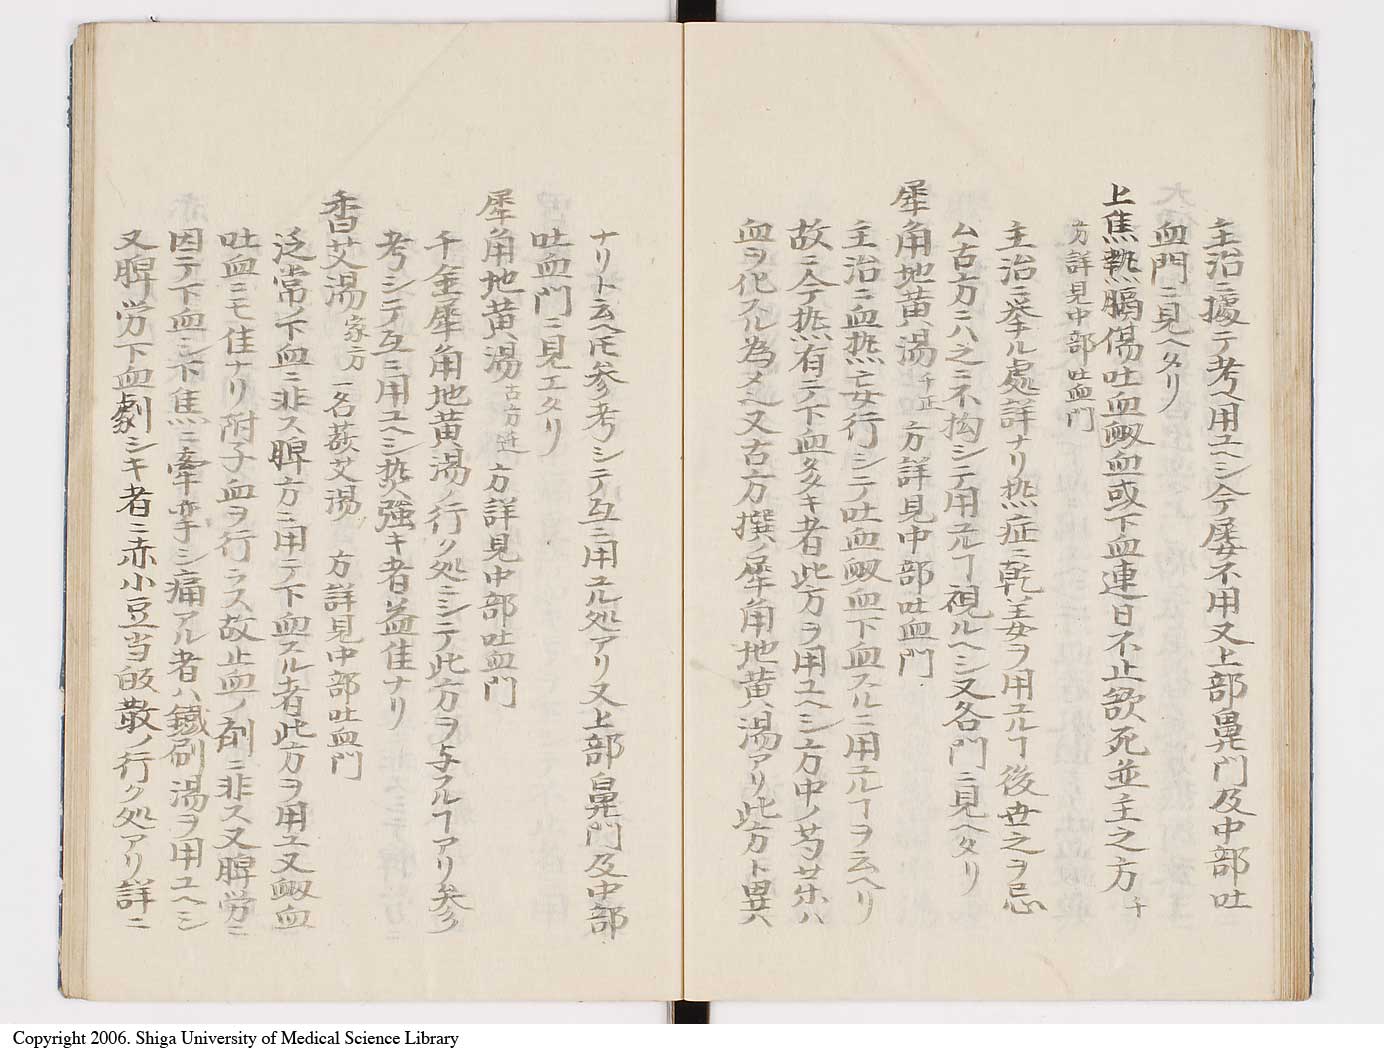 主治ニ據テ考ヘ用ユヘシ今屡々不用又上部鼻門及中部吐
血門ニ見ヘタリ
上焦熱膈傷吐血衂血或下血連日不止欲死並主之方 千
方詳見中部吐血門
主治ニ挙ル處詳ナリ热症ニ乾姜ヲ用ユルヿ後世之ヲ忌
ム古方ニハ之ニ不拘シテ用ユルヿ視ルヘシ又各門ニ見ヘタリ
犀角地黄湯 千正 方詳見中部吐血門
主治ニ血热妄行シテ吐血衂血下血スルニ用ユルヿヲ云ヘリ
故ニ今热有テ下血多キ者此方ヲ用ユヘシ方中ノ芍薬ハ
血ヲ化スル為メヘ又古方撰ノ犀角地黄湯アリ此方ト異ヘ
ナリト云ヘ𪜈参考シテ互ニ用ユル処アリ又上部鼻門及中部
吐血門ニ見エタリ
犀角地黄湯 古方選 方詳見中部吐血門
千金犀角地黄湯ノ行ク処ニシテ此方ヲ与スルヿアリ参
考シテ互ニ用ユヘシ热強キ者益佳ナリ
香艾湯 家方 一名莪艾湯 方詳見中部吐血門
泛常ノ下血ニ非ス脾方ニ用テ下血スル者此方ヲ用ユ又衂血
吐血ニモ佳ナリ附子血ヲ行ラス故止血ノ剤ニ非ス又脾労ニ
因テ下血シ下焦ニ牽挛シ痛アル者ハ鐵刷湯ヲ用ユヘシ
又脾労下血劇シキ者ニ赤小豆当皈散ノ行ク処アリ詳ニ
Copyright 2006. Shiga University of Medical Science Library